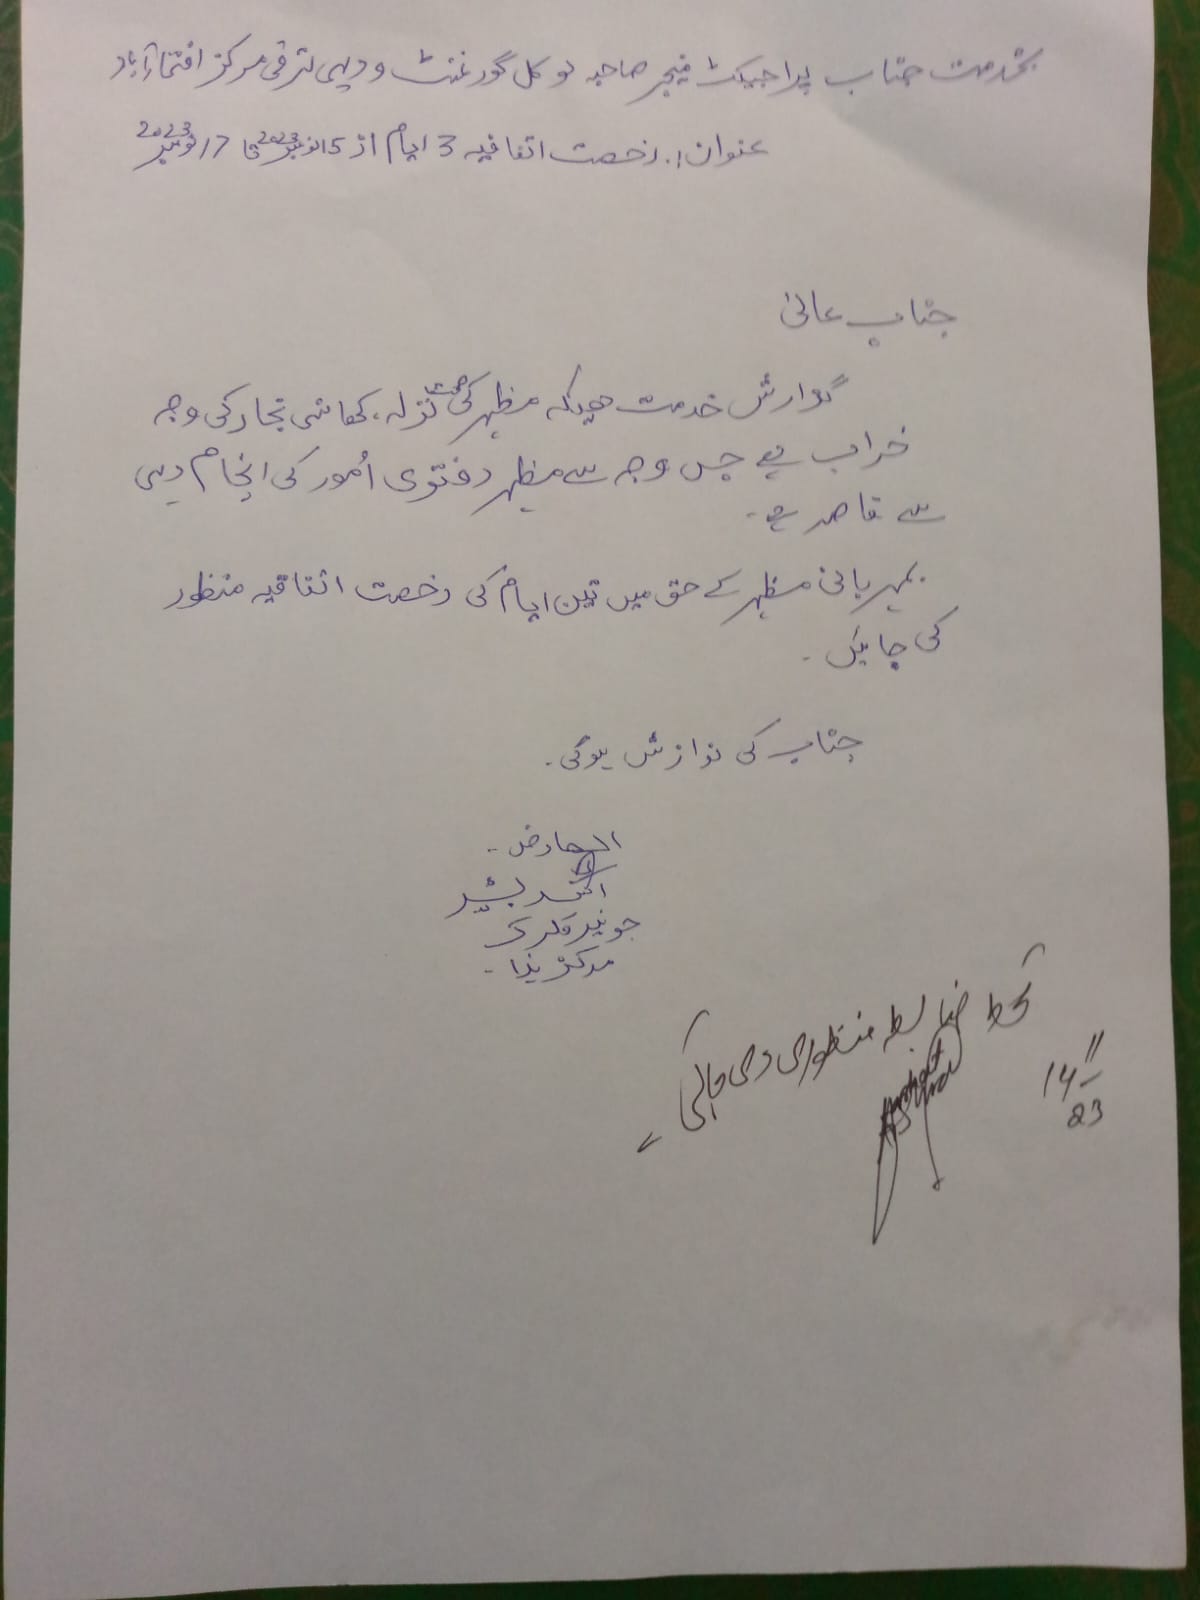 بخدمت جناب پراجیکٹ منیجر صاحبہ لوکل گورنمنٹ و دیہی ترقی مرکز افتخارآباد
عنوان:۔ رخصت اتفاقیہ 3 ایام از 15 نومبر 2023 تا 17 نومبر 2023
جناب عالی
گزارش خدمت ھیکہ مظہر کی صحت نزلہ، کھانسی بخار کی وجہ
خراب ہے جس وجہ سے مظہر دفتری اُمور کی انجام دہی
سے قاصر ہے۔
بمہربانی مظہر کے حق میں تین ایام کی رخصت اتفاقیہ منظور
کی جائیں۔
جناب کی نوازش ہوگی۔
العارض۔
بشیر
جونیئر کلرک
مرکز ہذا۔
تحت ضابطہ منظوری دی جاتی
ہے
14/11/23